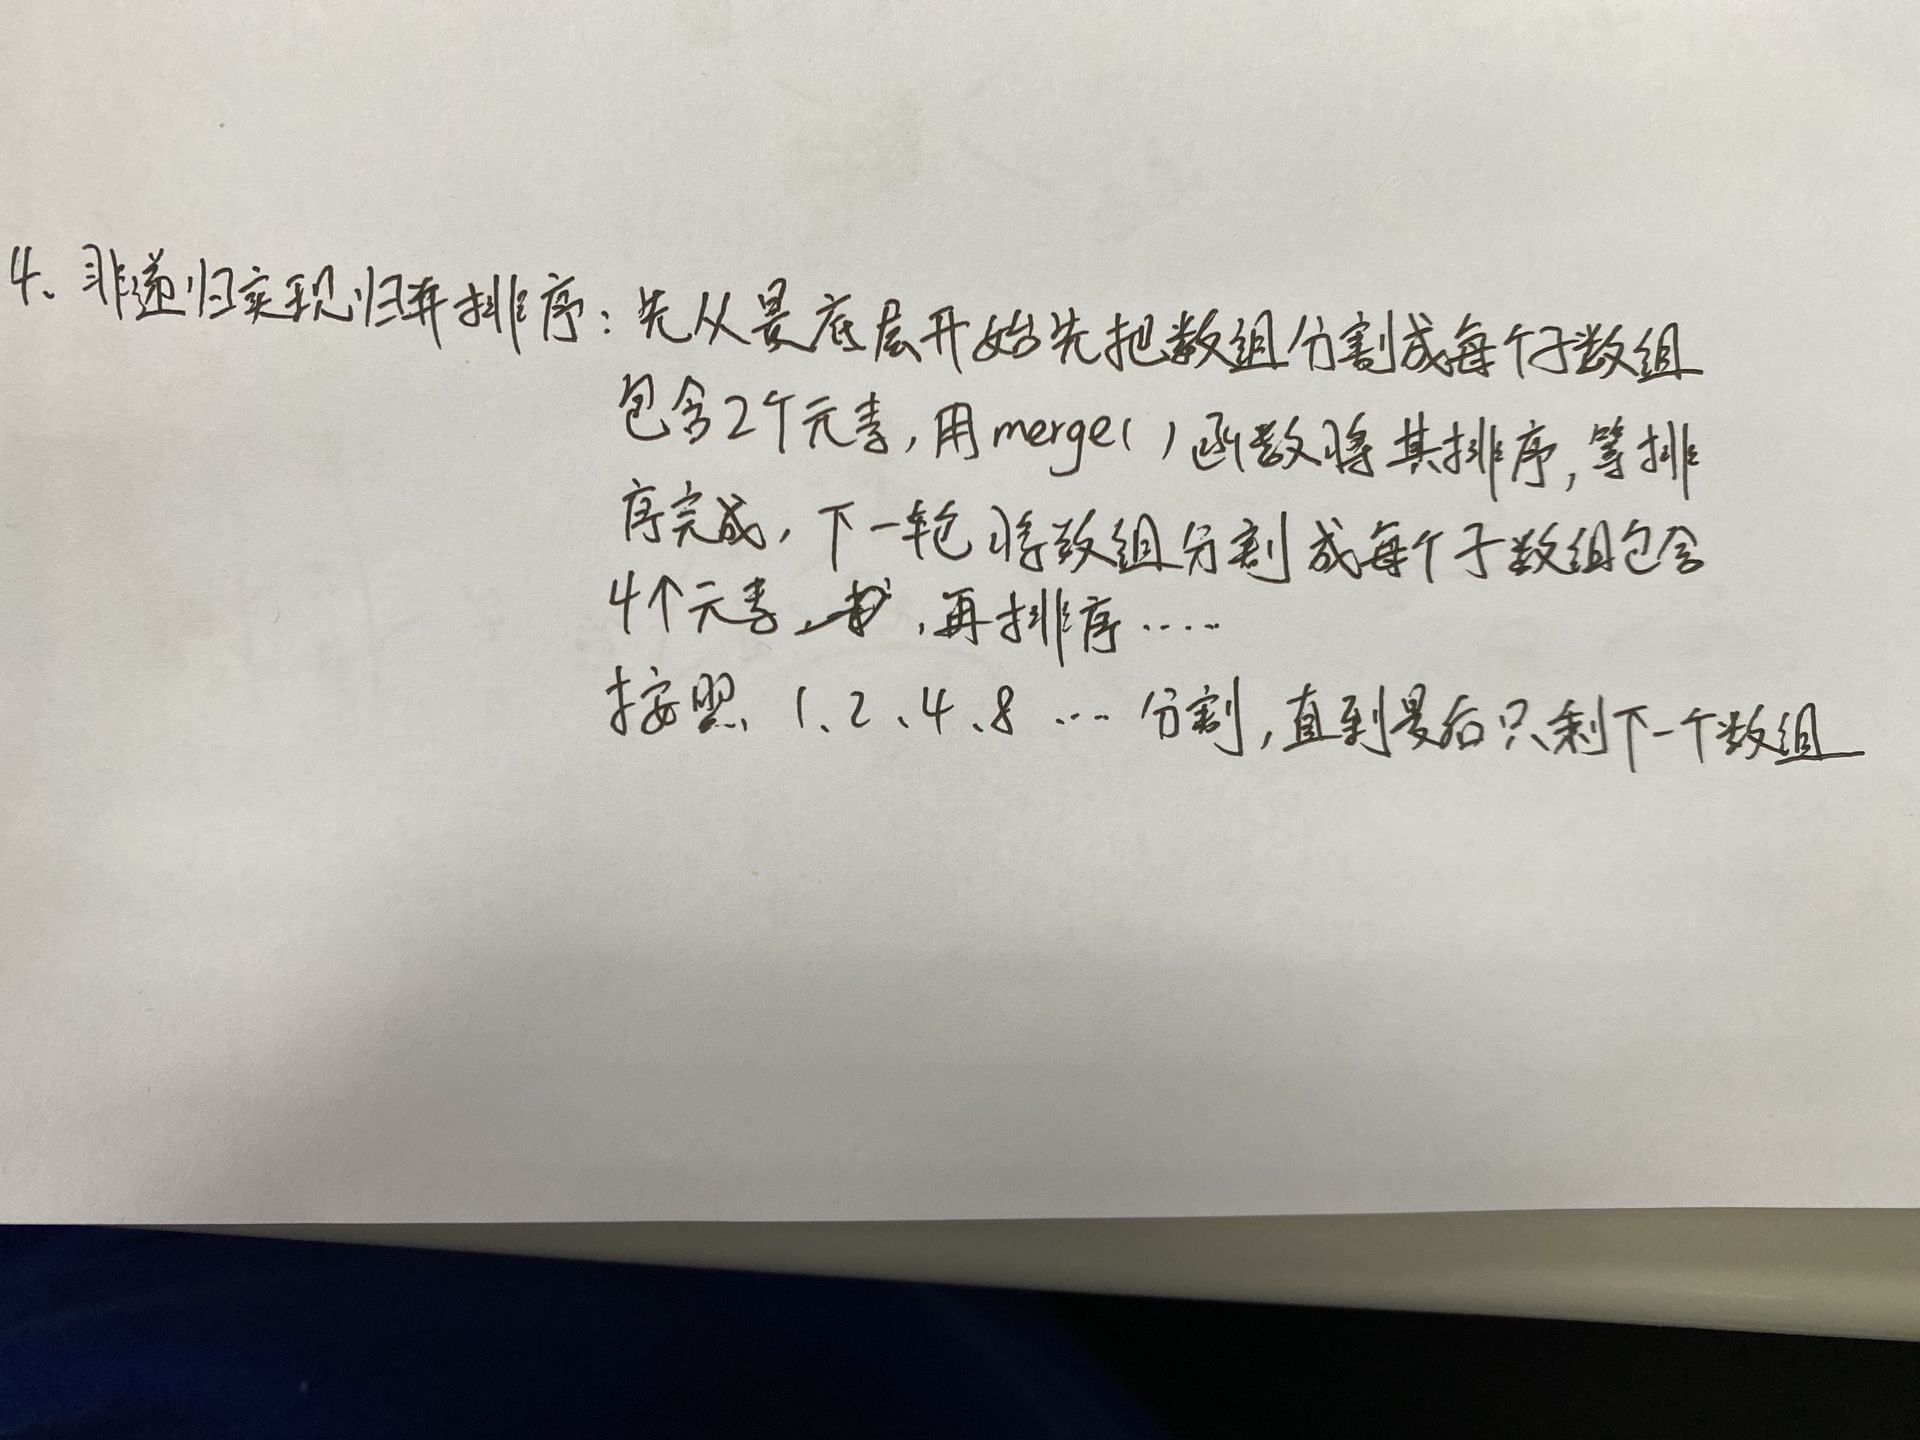 4、非递归实现归并排序：先从最底层开始先把数组分割成每个子数组
包含2个元素，用merge()函数将其排序，等排
序完成，下一轮将数组分割成每个子数组包含
4个元素，再排序……
按照1、2、4、8 …… 分割，直到最后只剩下一个数组